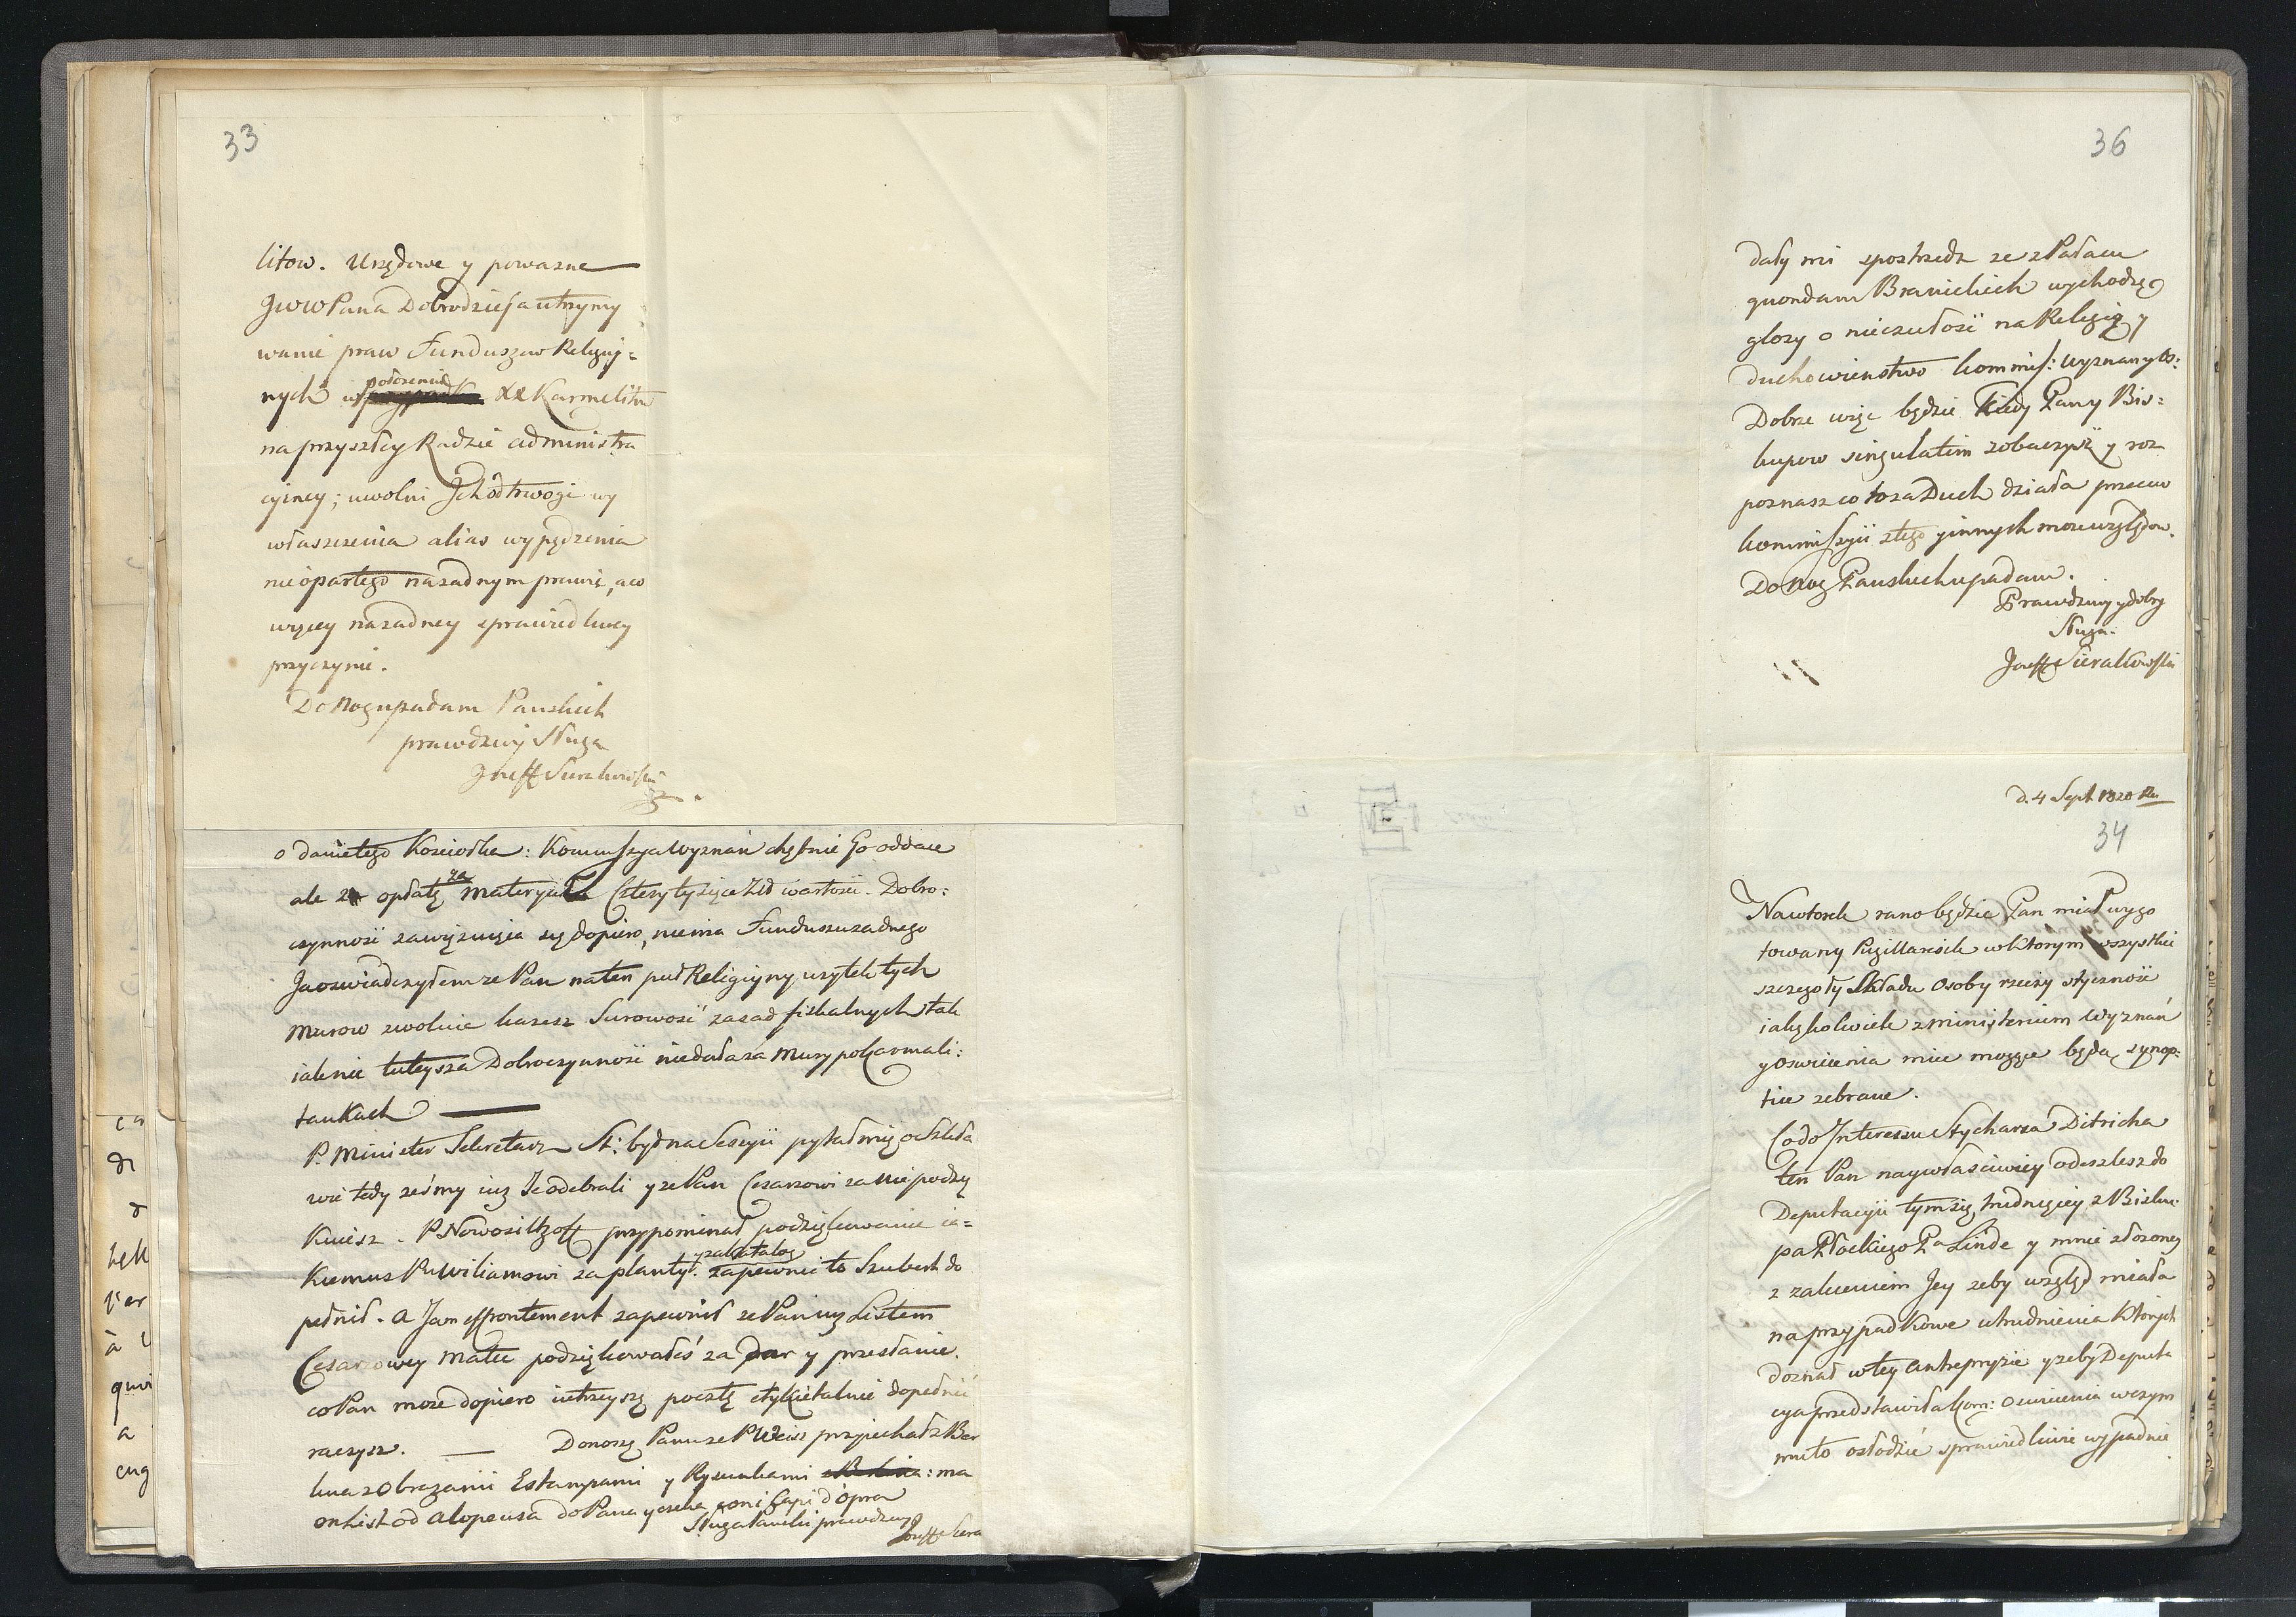 33
litow. Urzędowe y powazne
JWW Pana Dobrodzieja utrzymy
wanie praw Funduszow Religiy=
nych w położeniu XX Karmelitow
na przyszłey Radzie administra
cyiney; uwolni Jch od trwogi wy
właszczenia alias wypędzenia
nieopartego na zadnym prawie, a co
więcey na zadney sprawiedliwey
przyczynie.
Do Nog upadam Panskich
prawdziwy Sługa
Joseff Sierakowski
o danie tego Kosciołka: Kommissya Wyznań chętnie Go oddaie
ale za opłatę za materyał Cztery tysiące Zło wartosci. Dobro:
czynność zawięzuięca się dopiero, niema Funduszu zadnego
Ja oswiadczyłem ze Pan na ten pul Religiyny uzytek tych
Murow zwolnić kazesz Surowość zasad fiskalnych tak
iak nie tuteysza Dobroczynność nie dała za Mury po Karmeli:
tankach
P. Minister Sekretarz St: był na Sessyii pytał mię o Szkła
wie tedy żeśmy iuz Je odebrali y ze Pan Cesarzowi za nie podzię
Kuiesz. P. Nowosiltzoff przypominał podziękowanie ia=
Kiemus Pu Wiliamowi za planty y za Katalog. zapewnie to Szubert do
pełnił. a Jam effrontement zapewnił ze Pan iuz Listem
Cesarzowey Matce podziękowałeś za Dar y przesłanie.
co Pan moze dopiero iutrzeyszą pocztę etykietalnie dopełnić
raczysz. Donoszę Panu ze P Weiss przyiechał z Ber
lina z Obrazami Estampami y Rysunkami : ma
on List od Alopeusa do Pana y czeka coni Capi d'opra
Sługa Panski prawdziwy
Joseff Siera
36
Dały mi spostrzedz ze z Pałacu
quondam Branickich wychodzą
głosy o nieczułości na Religią y
duchowienstwo Kommis: Wyznany Os:
Dobrze więc będzie Kiedy Pany Bis=
kupow singulatim zobaczysz y roz
poznasz co to za Duch działa przeciw
Kommissyii z tego y innych moze względow.
Do Nog Panskich upadam.
Prawdziwy y dobry
Sługa.
Joseff Sierakowski
d. 4 Sept. 1820 Ru
34
Na wtorek rano będzie Pan miał wygo
towany Pugillarisek w ktorym wszystkie
szczegoły Składu Osoby rzeczy styczność
iakążkolwiek z ministerium Wyznań
y Oswicenia miec mogące będą synop:
tice zebrane.
Co do Interessu Stycharza Ditricha
ten Pan naywłasciwiey odeszlesz do
Deputacyii tym się trudniącey z Bisku:
pa Płockiego Pa Linde y mnie złożoney
z zaleceniem Jey zeby wzgląd miała
na przypadkowe utrudnienia Ktorych
doznał w tey Antrepryzie y zeby Deputa
cya przedstawiła Kom: Oswicenia w czym
mu to osłodzić sprawiedliwie wypadnie